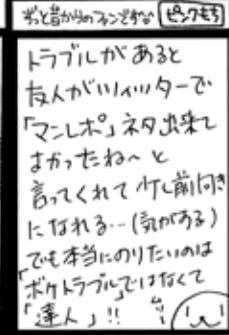 ずっと昔からのファンですが ピンクもち
トラブルがあると
友人がツイッターで
「マンレポ」ネタ出来て
よかったね〜と
言ってくれて少し前向き
になれる…(気がする)
でも本当にのりたいのは
「ポケトラブル」ではなくて
「達人」!!